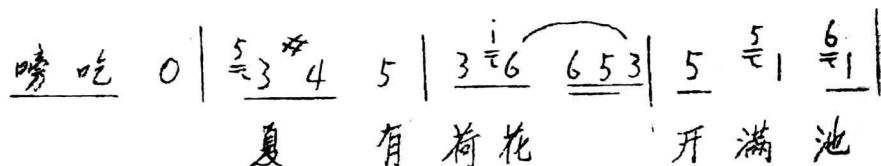 嗙吃 0 | 5 3 #4 5 | 3 i 6 6 5 3 | 5 5 1 6 1 |
夏 有 荷 花 开 满 池